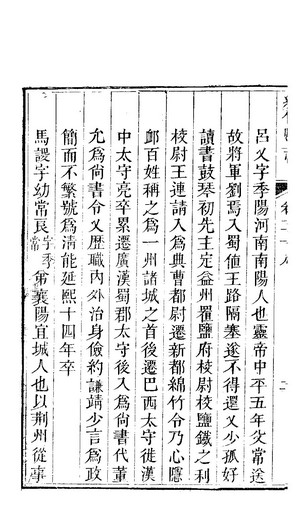 呂乂字季陽河南南陽人也靈帝中平五年父常送
故將軍劉焉入蜀值王路隔塞遂不得還乂少孤好
讀書鼓琴初先主定益州置鹽府校尉校鹽鐵之利
校尉王連請入為典曹都尉遷新都綿竹令乃心隱
卹百姓稱之為一州諸城之首後遷巴西太守徙漢
中太守亮卒累遷廣漢蜀郡太守後入為尚書代董
允為尚書令乂歷職內外治身儉約謙靖少言為政
簡而不繁號為清能延熙十四年卒
馬謖字幼常良字季常弟襄陽宜城人也以荊州從事